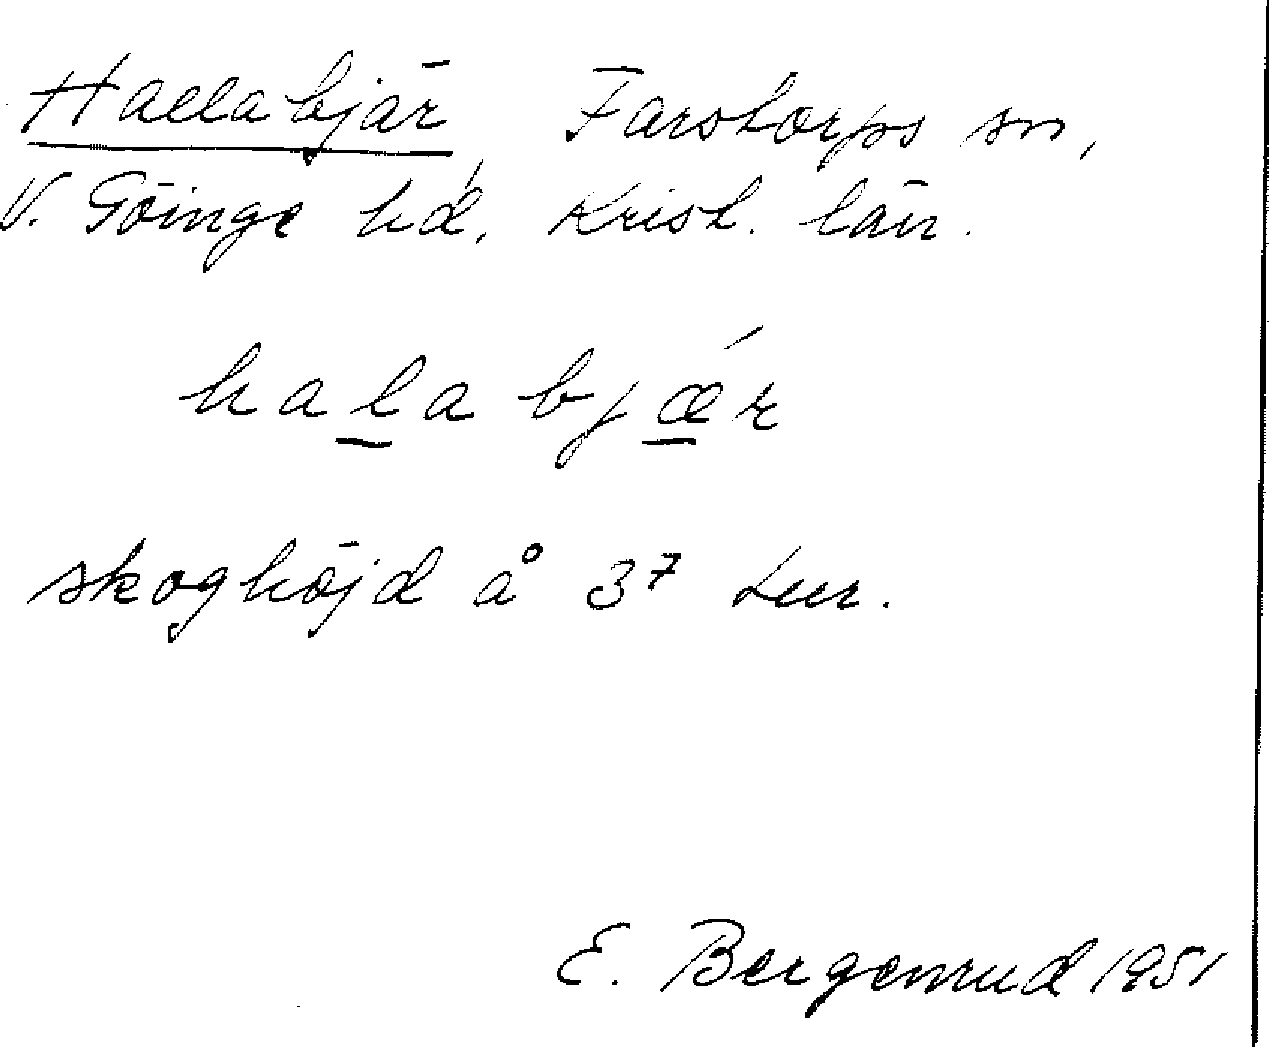 Hallabjär, Farstorps sn,
V. Göinge hd, Krist. län.
halabjǽr
skoghöjd å 3⁷ Lur.
E. Bergenrud 1951